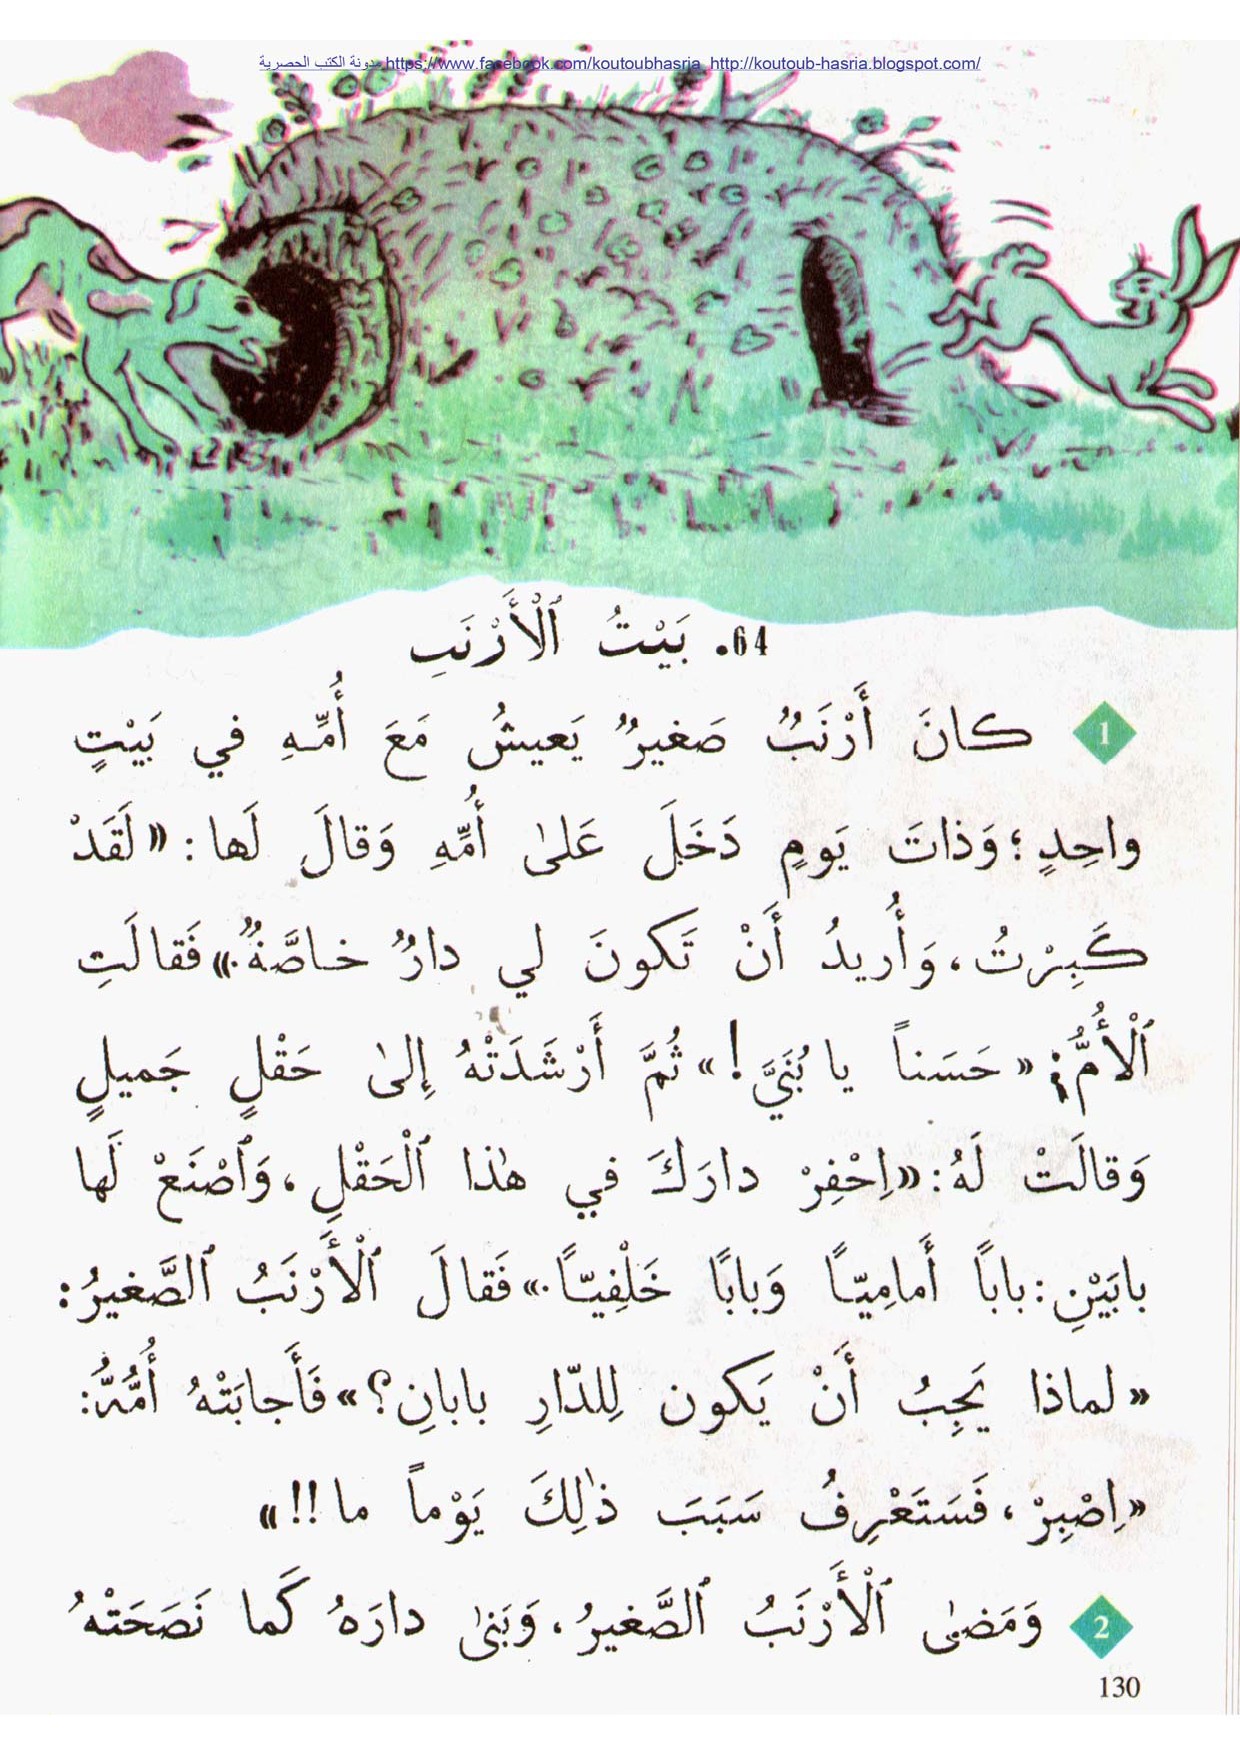 مدونة الكتب الحصرية https://www.facebook.com/koutoubhasria http://koutoub-hasria.blogspot.com/
64. بَيْتُ ٱلْأَرْنَبِ
1 كانَ أَرْنَبٌ صَغيرٌ يَعيشُ مَعَ أُمِّهِ في بَيْتٍ
واحِدٍ؛ وَذاتَ يَومٍ دَخَلَ عَلىٰ أُمِّهِ وَقالَ لَها: «لَقَدْ
كَبِرْتُ، وَأُريدُ أَنْ تَكونَ لي دارٌ خاصَّةٌ.» فَقالَتِ
ٱلْأُمُّ: «حَسَناً يا بُنَيَّ!» ثُمَّ أَرْشَدَتْهُ إِلىٰ حَقْلٍ جَميلٍ
وَقالَتْ لَهُ: «اِحْفِرْ دارَكَ في هٰذا ٱلْحَقْلِ، وَٱصْنَعْ لَها
بابَيْنِ: باباً أَمامِيّاً وَبابًا خَلْفِيّاً.» فَقالَ ٱلْأَرْنَبُ ٱلصَّغيرُ:
«لماذا يَجِبُ أَنْ يَكون لِلدّارِ بابانِ؟» فَأَجابَتْهُ أُمُّهُ:
«اِصْبِرْ، فَسَتَعْرِفُ سَبَبَ ذٰلِكَ يَوْماً ما!!»
2 وَمَضىٰ ٱلْأَرْنَبُ ٱلصَّغيرُ، وَبَنىٰ دارَهُ كَما نَصَحَتْهُ
130